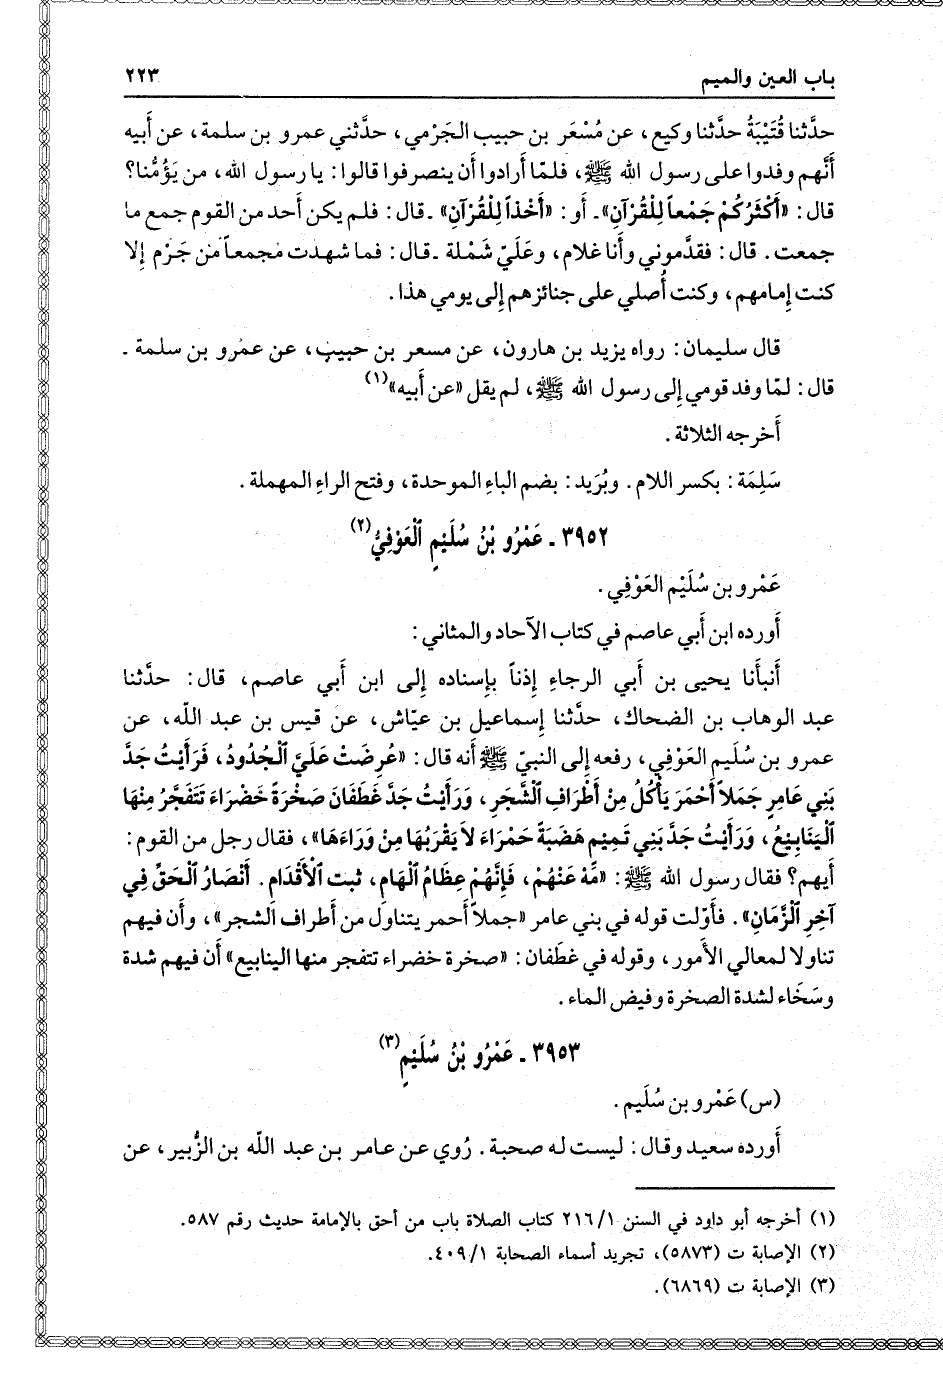 باب العين والميم ٢٢٣
حدَّثنا قُتَيْبَةُ حدَّثنا وكيع، عن مُسْعَر بن حبيب الجَرْمي، حدَّثني عمرو بن سلمة، عن أَبيه
أَنَّهم وفدوا على رسول الله ﷺ، فلمّا أَرادوا أَن ينصرفوا قالوا: يا رسول الله، من يَؤُمُّنا؟
قال: «أَكْثَرُكُمْ جَمْعاً لِلْقُرْآنِ»ـ أَو: «أَخْذاً لِلْقُرْآنِ» ـ قال: فلم يكن أَحد من القوم جمع ما
جمعت. قال: فقدَّموني وأَنا غلام، وعَلَيّ شَمْلة ـ قال: فما شهدت مجمعاً من جَرْم إِلا
كنت إِمامهم، وكنت أُصلي على جنائزهم إِلى يومي هذا.
قال سليمان: رواه يزيد بن هارون، عن مسعر بن حبيب، عن عمرو بن سلمة ـ
قال: لمّا وفد قومي إِلى رسول الله ﷺ، لم يقل «عن أَبيه»(١)
أَخرجه الثلاثة.
سَلِمَة: بكسر اللام. وبُرَيد: بضم الباءِ الموحدة، وفتح الراءِ المهملة.
٣٩٥٢ ـ عَمْرُو بْنُ سُلَيْمٍ ٱلْعَوْفِيُّ(٢)
عَمْرو بن سُلَيْم العَوْفِي.
أَورده ابن أَبي عاصم في كتاب الآحاد والمثاني:
أَنبأَنا يحيى بن أَبي الرجاءِ إِذناً بإِسناده إِلى ابن أَبي عاصم، قال: حدَّثنا
عبد الوهاب بن الضحاك، حدَّثنا إِسماعيل بن عيّاش، عن قيس بن عبد اللّه، عن
عمرو بن سُلَيم العَوْفِي، رفعه إِلى النبيّ ﷺ أَنه قال: «عُرِضَتْ عَلَيَّ ٱلْجُدُودُ، فَرَأَيْتُ جَدَّ
بَنِي عَامِرٍ جَمَلاً أَحْمَرَ يَأْكُلُ مِنْ أَطْرَافِ ٱلْشَّجَرِ، وَرَأَيْتُ جَدَّ غَطَفَانَ صَخْرَةً خَضْرَاءَ تَتَفَجَّرُ مِنْهَا
ٱلْيَنَابِيْعُ، وَرَأَيْتُ جَدَّ بَنِي تَمِيْمٍ هَضَبَةً حَمْرَاءَ لاَ يَقْرَبُهَا مِنْ وَرَاءَهَا»، فقال رجل من القوم:
أَيهم؟ فقال رسول الله ﷺ: «مَّهْ عَنْهُمْ، فَإِنَّهُمْ عِظَامُ ٱلْهَامِ، ثبت ٱلْأَقْدَامِ. أَنْصَارُ ٱلْحَقِّ فِي
آخِرِ ٱلْزَّمَانِ». فأَوّلت قوله في بني عامر «جملاً أَحمر يتناول من أَطراف الشجر»، وأَن فيهم
تناولا لمعالي الأُمور، وقوله في غطَفان: «صخرة خضراء تتفجر منها الينابيع» أَن فيهم شدة
وسَخَاء لشدة الصخرة وفيض الماء.
٣٩٥٣ ـ عَمْرُو بْنُ سُلَيْمٍ(٣)
(س) عَمْرو بن سُلَيم.
أَورده سعيد وقال: ليست له صحبة. رُوي عن عامر بن عبد اللّه بن الزُّبير، عن
(١) أخرجه أبو داود في السنن ٢١٦/١ كتاب الصلاة باب من أحق بالإمامة حديث رقم ٥٨٧.
(٢) الإصابة ت (٥٨٧٣)، تجريد أسماء الصحابة ٤٠٩/١.
(٣) الإصابة ت (٦٨٦٩).